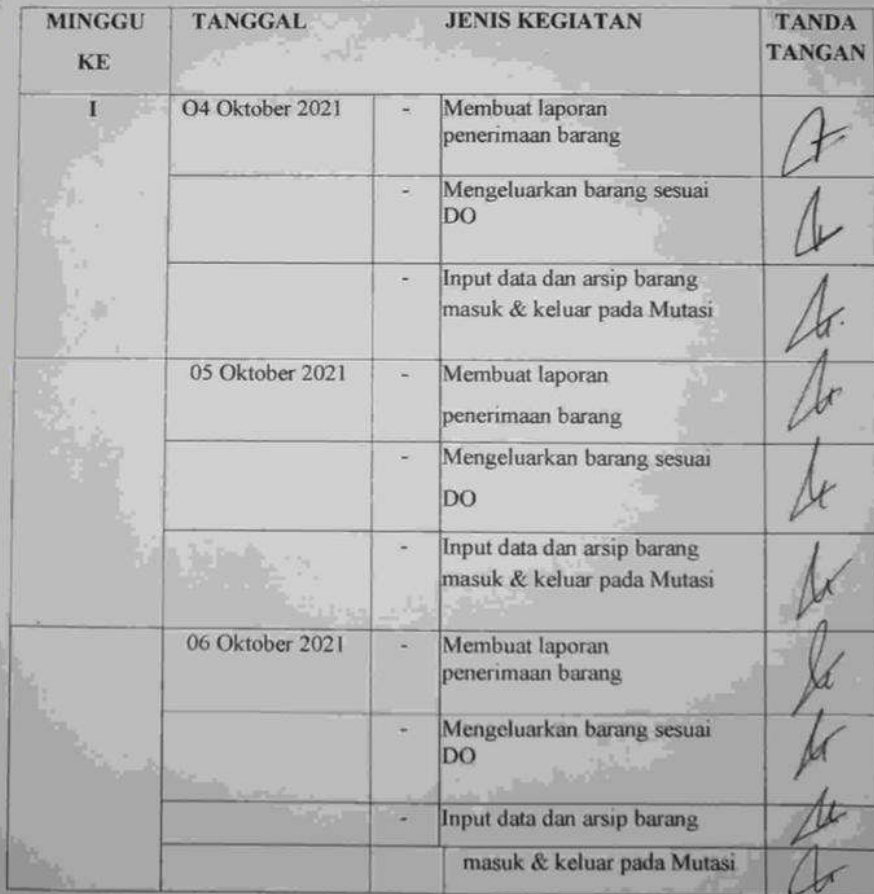 MINGGU KE TANGGAL JENIS KEGIATAN TANDA TANGAN
I O4 Oktober 2021 - Membuat laporan
penerimaan barang
- Mengeluarkan barang sesuai
DO
- Input data dan arsip barang
masuk & keluar pada Mutasi
05 Oktober 2021 - Membuat laporan
penerimaan barang
- Mengeluarkan barang sesuai
DO
- Input data dan arsip barang
masuk & keluar pada Mutasi
06 Oktober 2021 - Membuat laporan
penerimaan barang
- Mengeluarkan barang sesuai
DO
- Input data dan arsip barang
masuk & keluar pada Mutasi